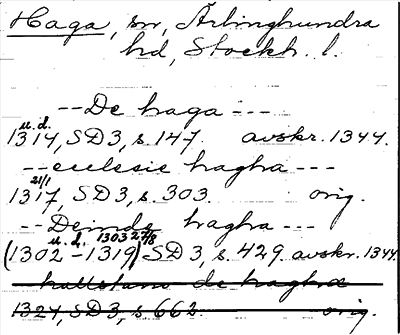 Haga, sn, Ärlinghundra
hd, Stockh. l.
--De haga---
u.d.
1314, SD3, s. 147. avskr. 1344.
--ecclesie haghra---
21/1
1317, SD3, s. 303. orig.
--Deinde haghra---
u.d. 1303 27/8
(1302-1319) SD3, s. 429. avskr. 1344
hallstano de haghra
1324, SD3, s 662 orig.